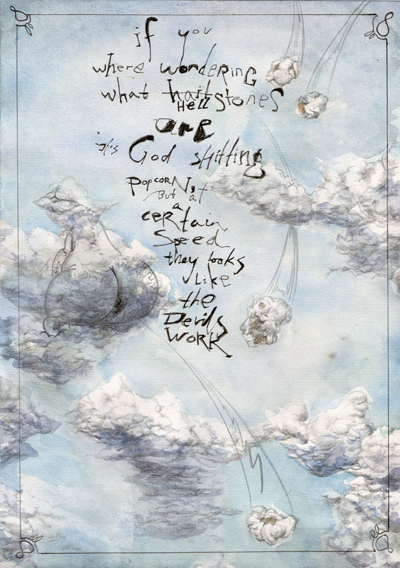 if you
where wondering
what hailstones
HELL
are
it's God shitting
popcorn,
But at
a
certain
Speed
they looks
like
the
Devils
WORK